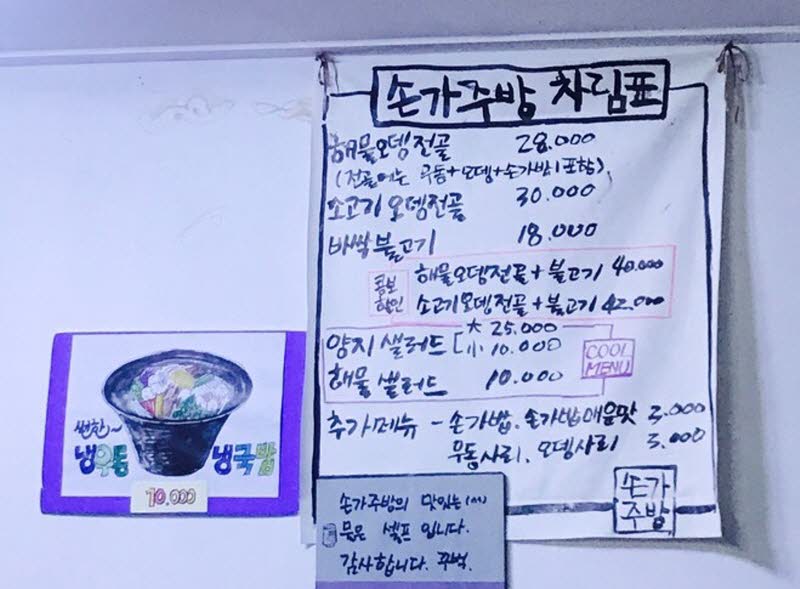 손가주방 차림표
해물오뎅전골 28.000
(전골에는 우동+오뎅+손가밥 포함)
소고기오뎅전골 30.000
바싹불고기 18.000
콤보할인
해물오뎅전골+불고기 40.000
소고기오뎅전골+불고기 42.000
양지샐러드 大 25.000
小 10.000
해물샐러드 10.000
COOL MENU
추가메뉴 - 손가밥. 손가밥매운맛 3.000
우동사리. 오뎅사리 3.000
손가
주방
썬한~
냉우동 냉국밥
10.000
손가주방의 맛있는(^^)
물은 셀프 입니다.
감사합니다. 꾸벅.